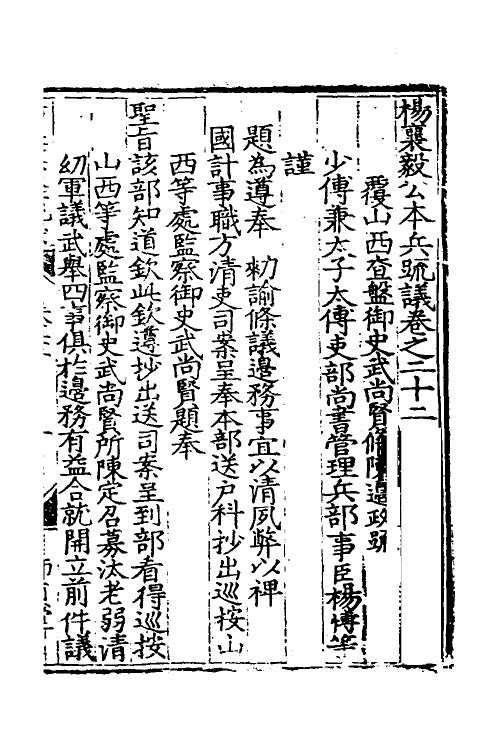 楊襄毅公本兵疏議卷之二十二
覆山西查盤御史武尚賢條陳邊政疏
少傅兼太子太傅吏部尚書管理兵部事臣楊博等
謹
題為遵奉 勑諭條議邊務事宜以清夙弊以裨
國計事職方清吏司案呈奉本部送戶科抄出巡按山
西等處監察御史武尚賢題奉
聖旨該部知道欽此欽遵抄出送司案呈到部看得巡按
山西等處監察御史武尚賢所陳定召募汰老弱清
幼軍議武舉四事俱於邊務有益合就開立前件議